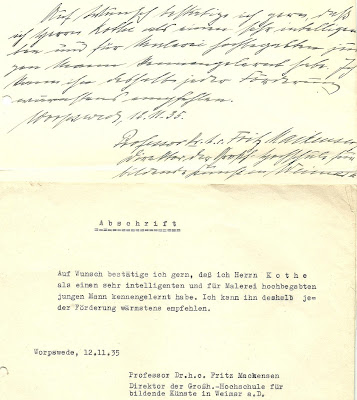 Auf Wunsch bestätige ich gern, daß
ich Herrn Kothe als einen sehr intelligen
ten und für Malerei hochbegabten jun
gen Mann kennengelernt habe. Ich
kann ihn deshalb jeder Förderung
wärmstens empfehlen.
Worpswede 12.11.35.
Professor Dr. h.c. Fritz Mackensen
Direktor der Großh. Hochschule für
bildende Künste in Weimar
Abschrift
Auf Wunsch bestätige ich gern, daß ich Herrn K o t h e
als einen sehr intelligenten und für Malerei hochbegabten
jungen Mann kennengelernt habe. Ich kann ihn deshalb je=
der Förderung wärmstens empfehlen.
Worpswede, 12.11.35
Professor Dr.h.c. Fritz Mackensen
Direktor der Großh.-Hochschule für
bildende Künste in Weimar a.D.